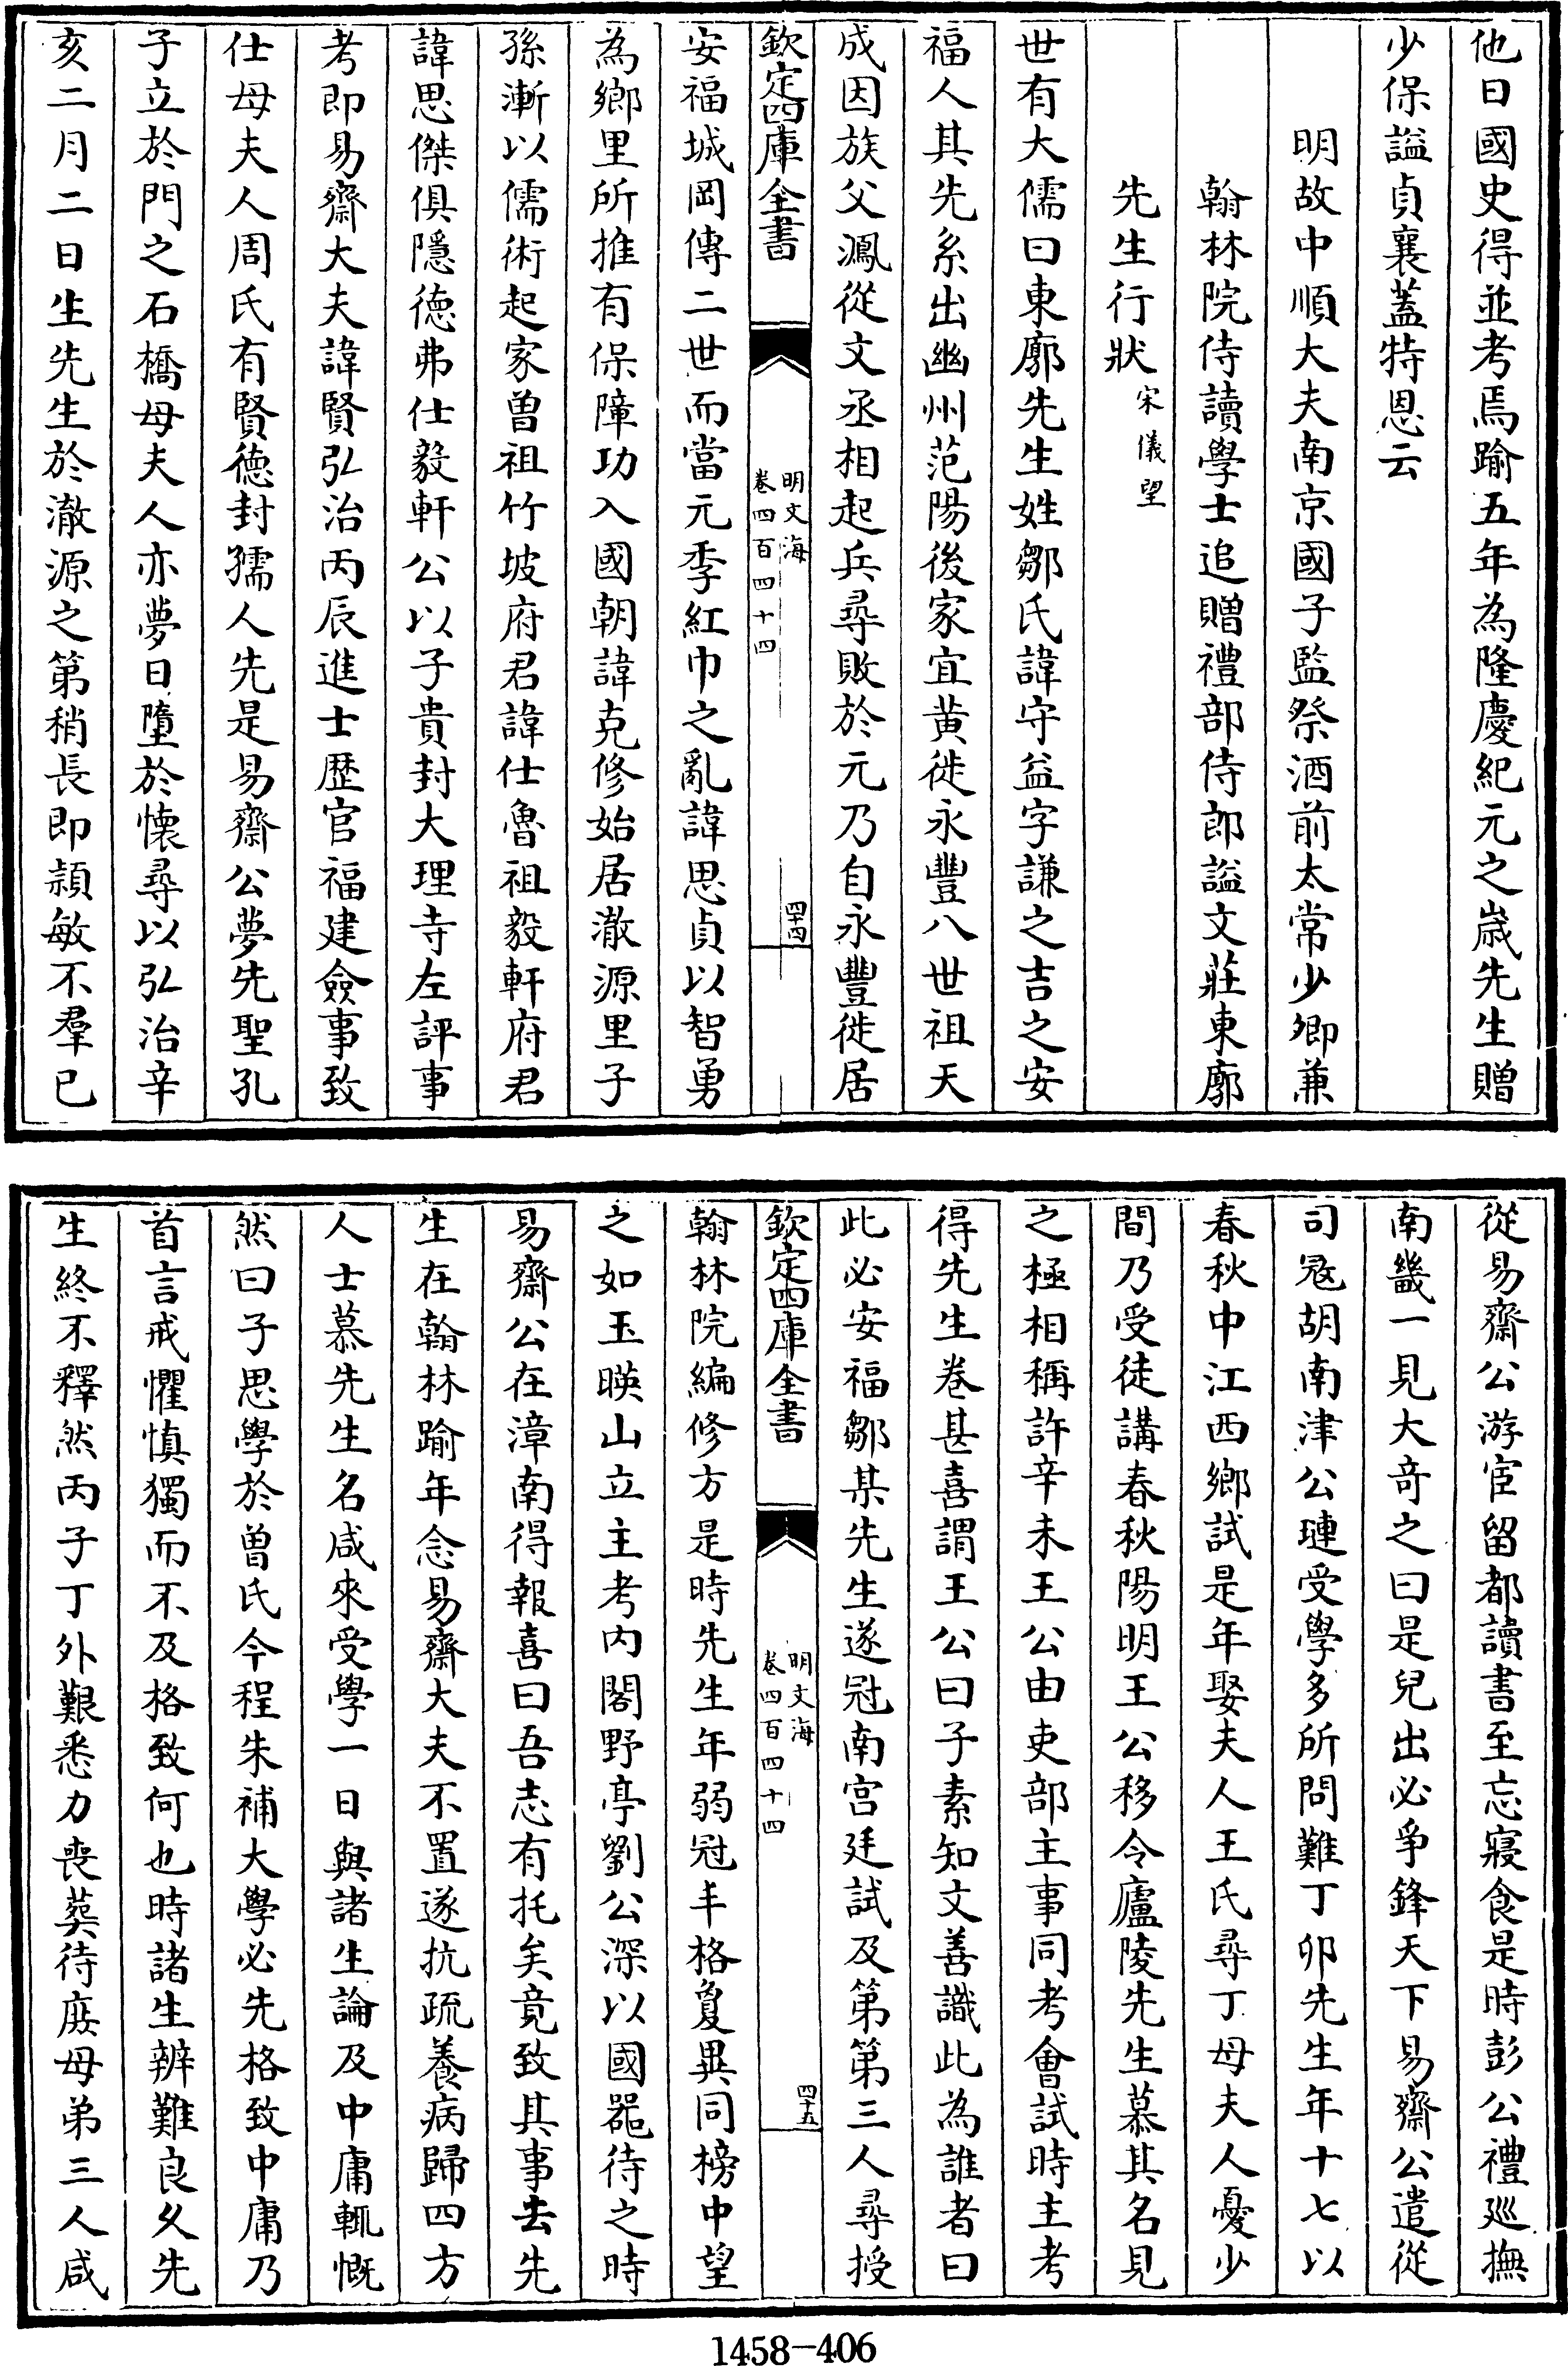 他日國史得並考焉踰五年為隆慶紀元之歲先生贈
少保謚貞襄蓋特恩云
明故中順大夫南京國子監祭酒前太常少卿兼
翰林院侍讀學士追贈禮部侍郎謚文莊東廓
先生行狀宋儀望
世有大儒曰東廓先生姓鄒氏諱守益字謙之吉之安
福人其先系出幽州范陽後家宜黄徙永豐八世祖天
成因族父㵯從文丞相起兵尋敗於元乃自永豐徙居
欽定四庫全書
明文海
卷四百四十四
四十四
安福城岡傳二世而當元季紅巾之亂諱思貞以智勇
為鄉里所推有保障功入國朝諱克修始居澈源里子
孫漸以儒術起家曽祖竹坡府君諱仕魯祖毅軒府君
諱思傑俱隱德弗仕毅軒公以子貴封大理寺左評事
考即易齋大夫諱賢弘治丙辰進士歴官福建僉事致
仕母夫人周氏有賢德封孺人先是易齋公夢先聖孔
子立於門之石橋母夫人亦夢日墮於懐尋以弘治辛
亥二月二日生先生於澈源之第稍長即頴敏不羣已
從易齋公游宦留都讀書至忘寢食是時彭公禮廵撫
南畿一見大奇之曰是兒出必爭鋒天下易齋公遣從
司冦胡南津公璉受學多所問難丁卯先生年十七以
春秋中江西鄉試是年娶夫人王氏尋丁母夫人憂少
間乃受徒講春秋陽明王公移令廬陵先生慕其名見
之極相稱許辛未王公由吏部主事同考會試時主考
得先生卷甚喜謂王公曰子素知文善識此為誰者曰
此必安福鄒某先生遂冠南宫廷試及第第三人尋授
欽定四庫全書
明文海
卷四百四十四
四十五
翰林院編修方是時先生年弱冠丰格夐異同榜中望
之如玉暎山立主考内閣野亭劉公深以國器待之時
易齋公在漳南得報喜曰吾志有托矣竟致其事去先
生在翰林踰年念易齋大夫不置遂抗疏養病歸四方
人士慕先生名咸來受學一日與諸生論及中庸輒慨
然曰子思學於曽氏今程朱補大學必先格致中庸乃
首言戒懼慎獨而不及格致何也時諸生辨難良久先
生終不釋然丙子丁外艱悉力喪葬待庶母弟三人咸
1458-406